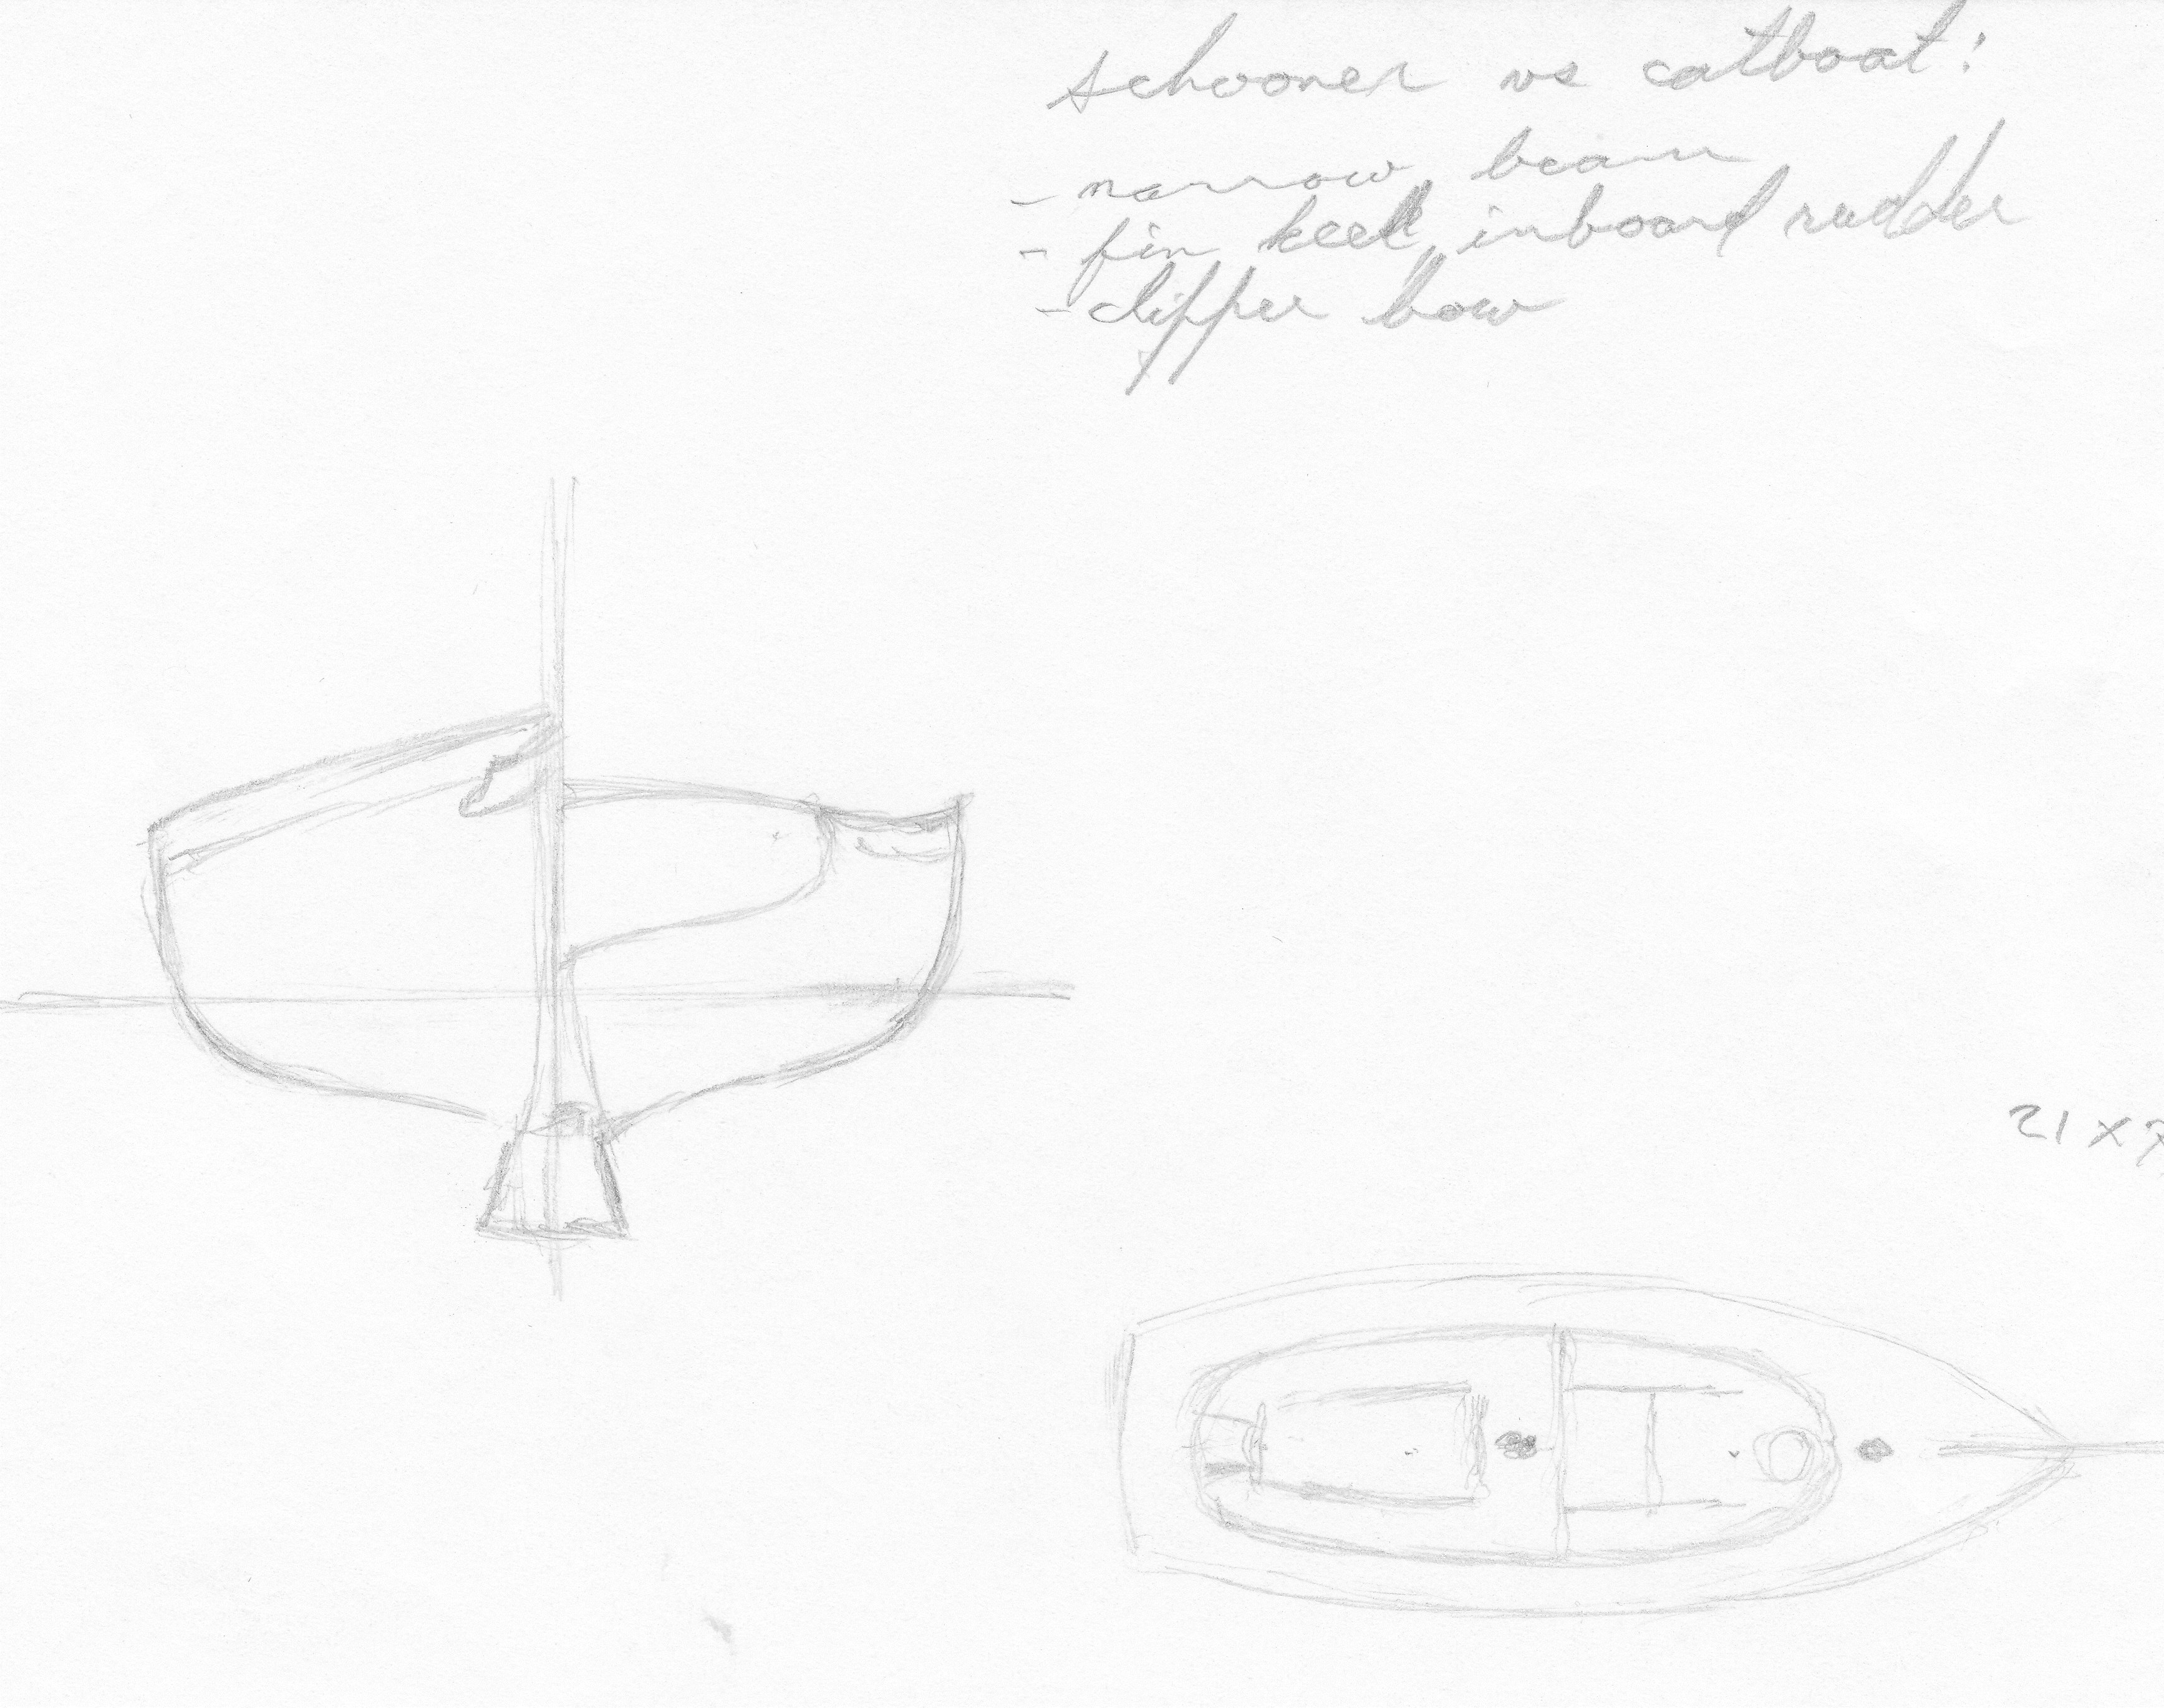 schooner vs catboat:
- narrow beam
- fin keel, inboard rudder
- clipper bow
21 x 7